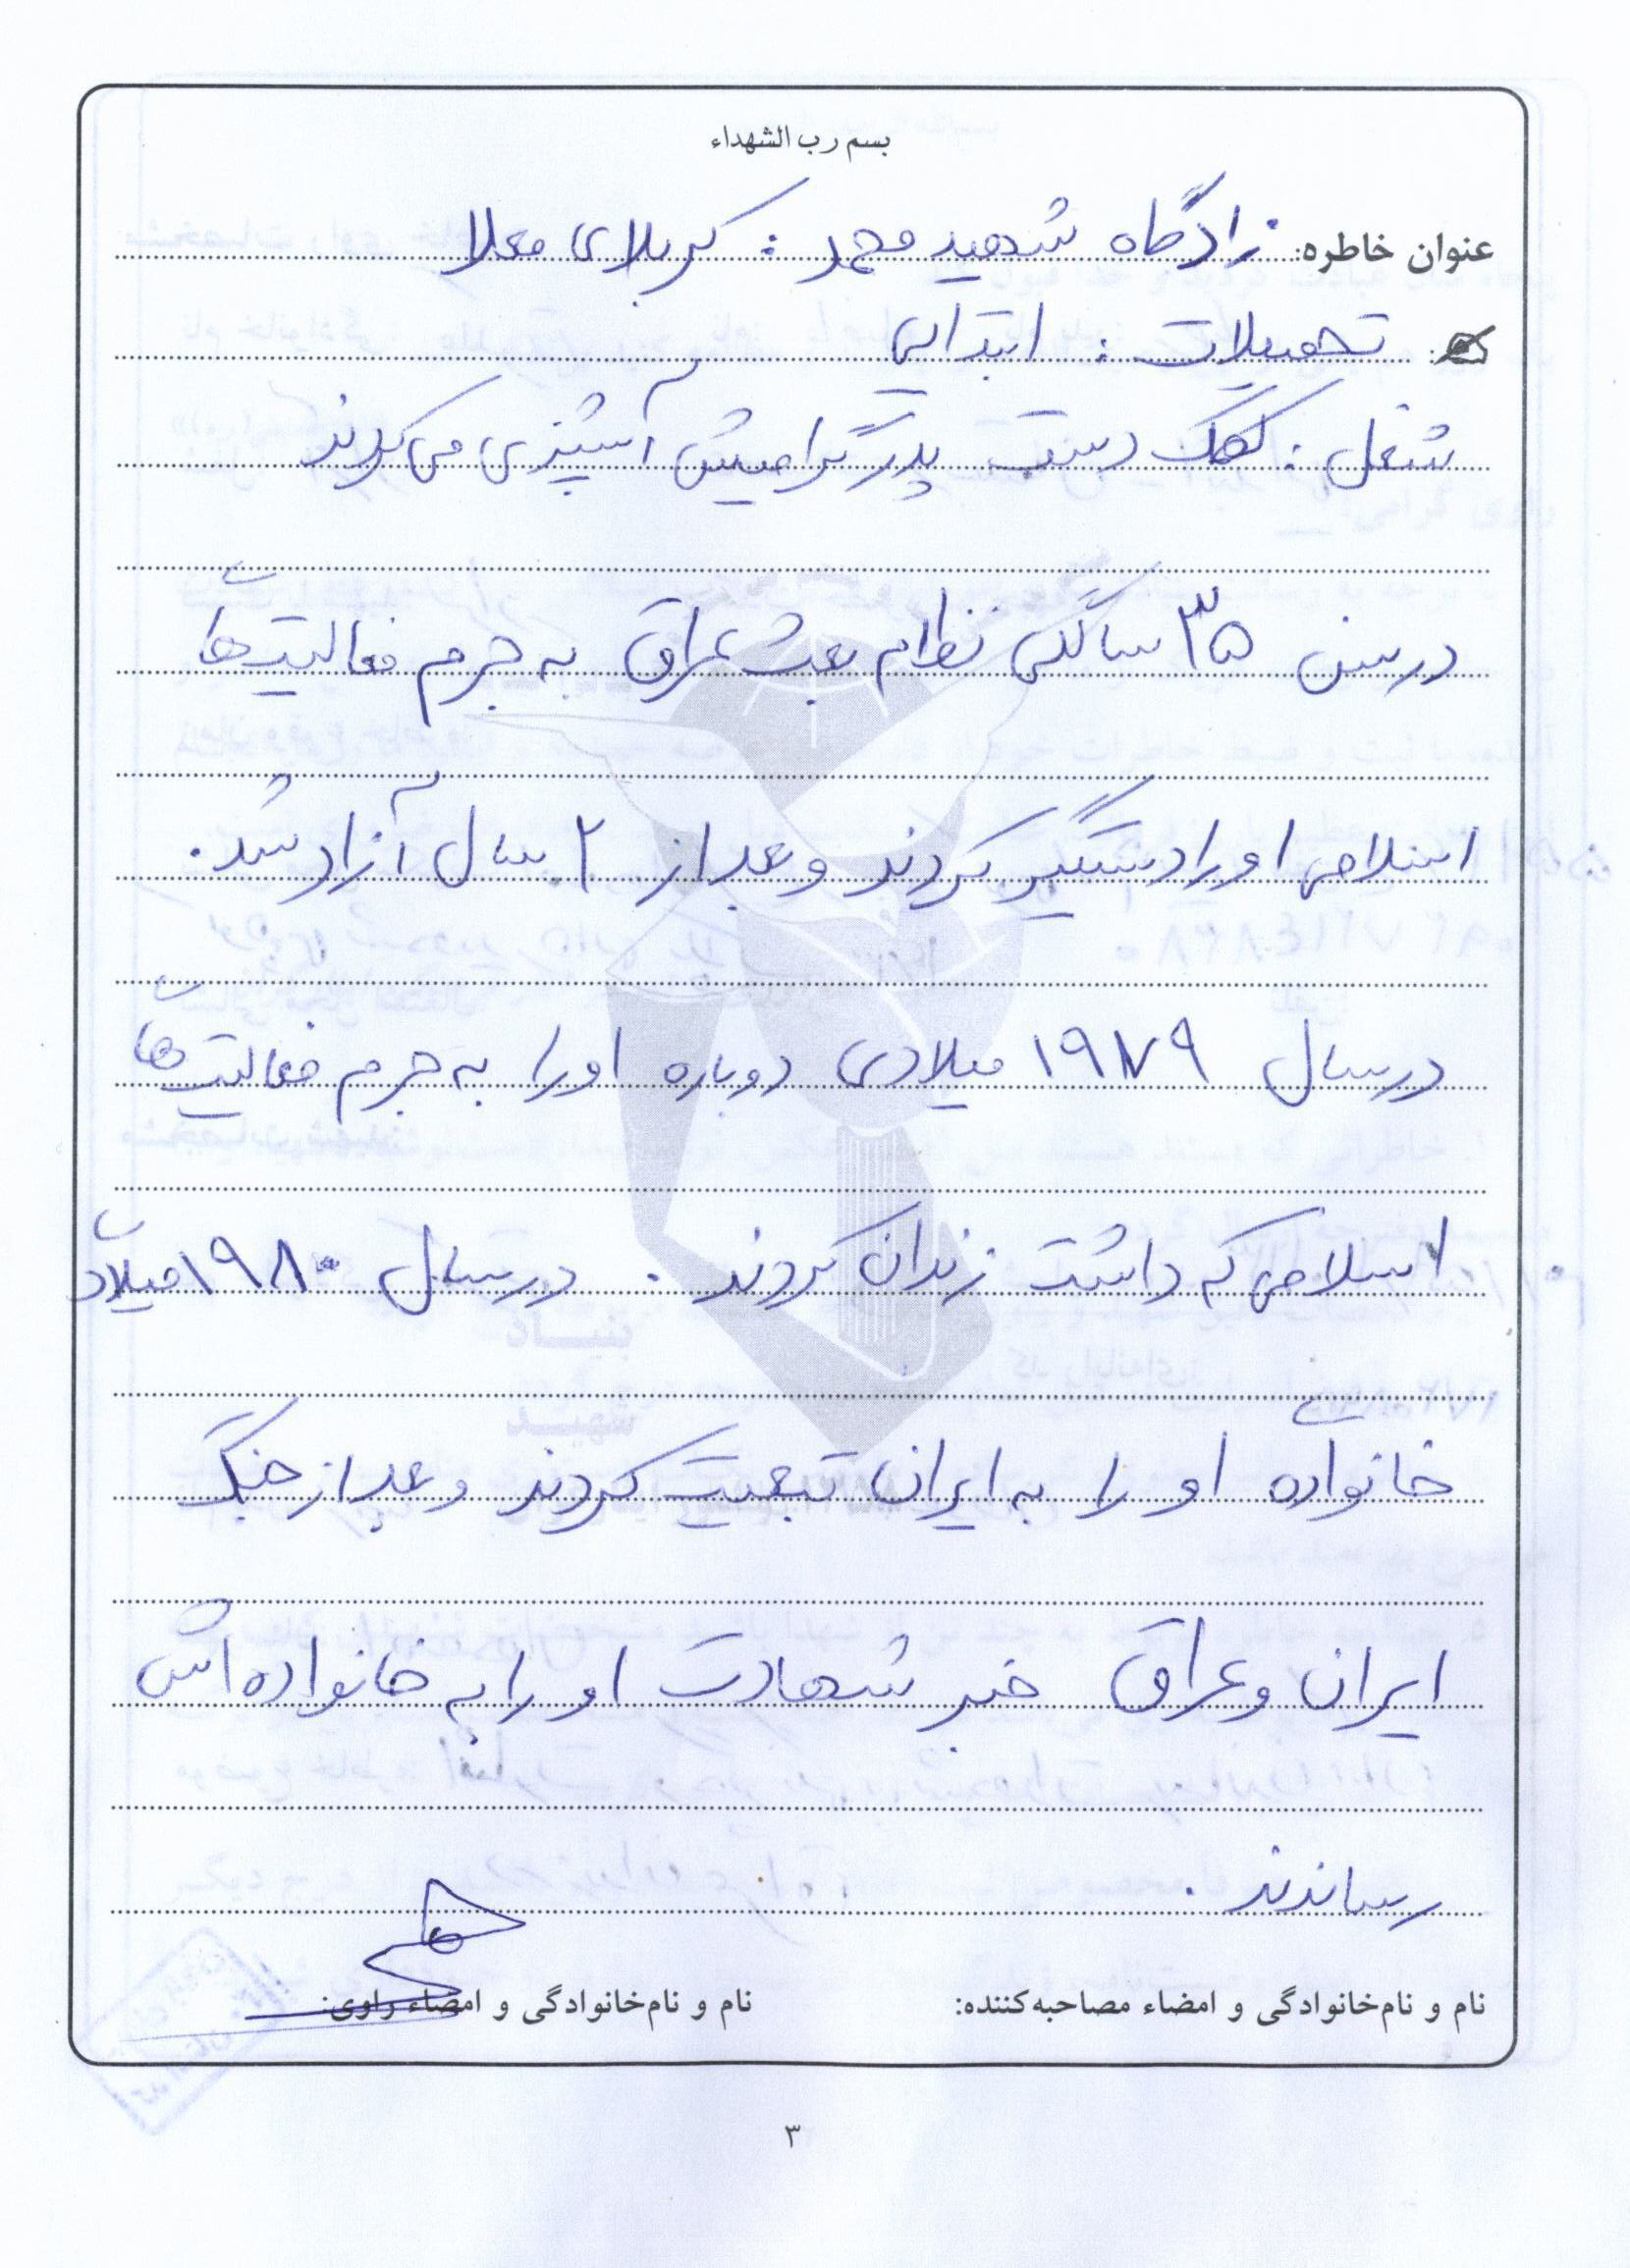 بسم رب الشهداء
عنوان خاطره: زادگاه شهید محمد : کربلای معلا
تحصیلات : ابتدایی
شغل : کمک دست پدر گرامیش آشپزی می کردند
در سن ۳۵ سالگی نظام بعث عراق به جرم فعالیت ها
اسلامی او را دستگیر کردند و بعد از ۲ سال آزاد شد.
در سال ۱۹۷۹ میلادی دوباره او را به جرم فعالیت ها
اسلامی که داشت زندان کردند . در سال ۱۹۸۰ میلاد
خانواده او را به ایران تبعیت کردند و بعد از جنگ
ایران و عراق خبر شهادت او را به خانواده اش
رساندند .
نام و نام‌خانوادگی و امضاء مصاحبه‌کننده: نام و نام‌خانوادگی و امضاء راوی:
۳